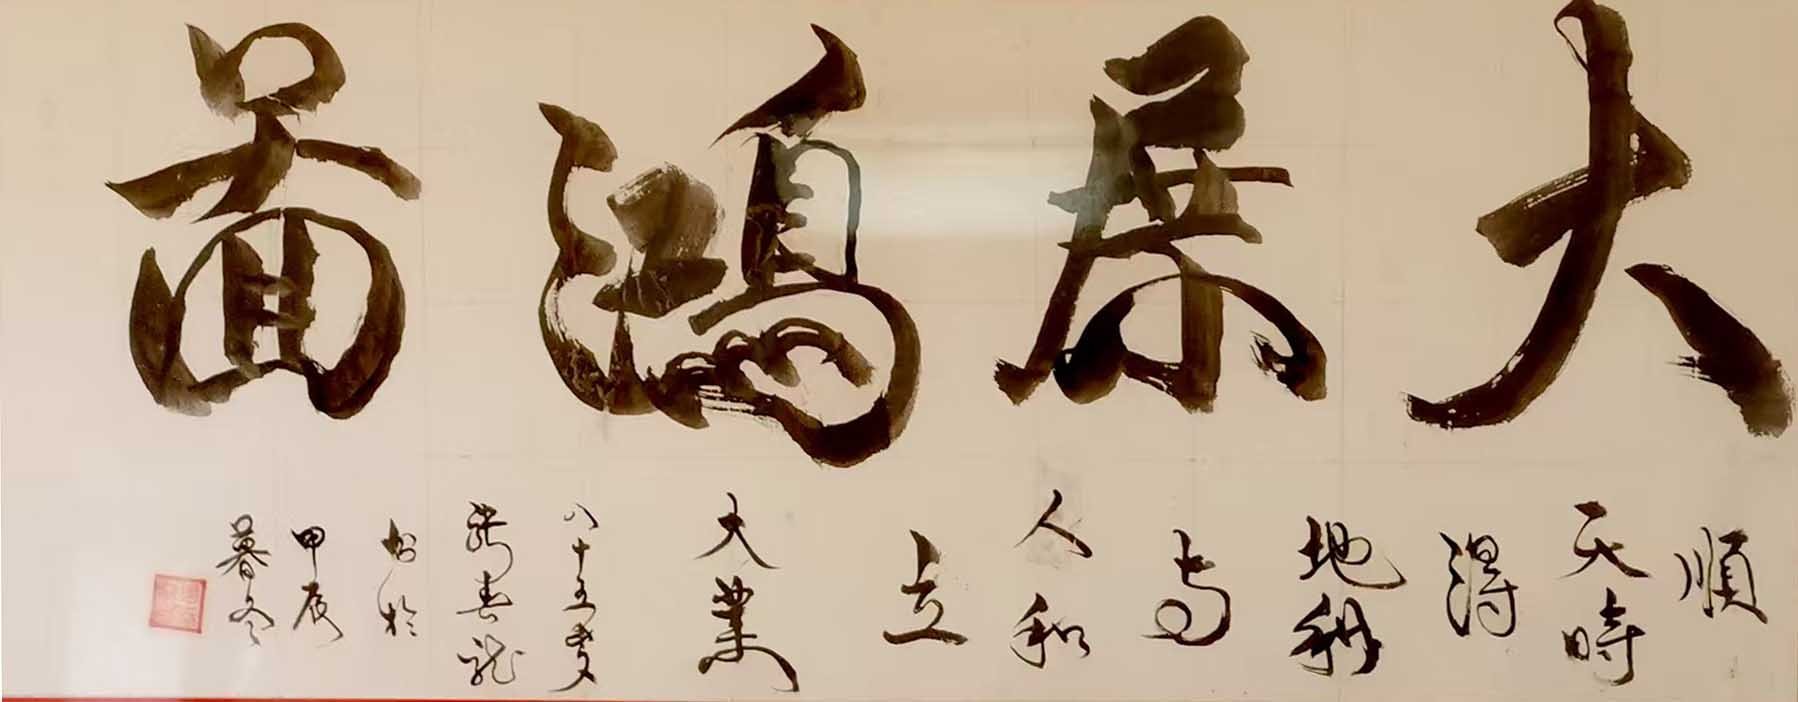 大展鴻圖
順
天時
得
地利
与
人和
立
大業
八十五叟
書於
甲辰
暮冬